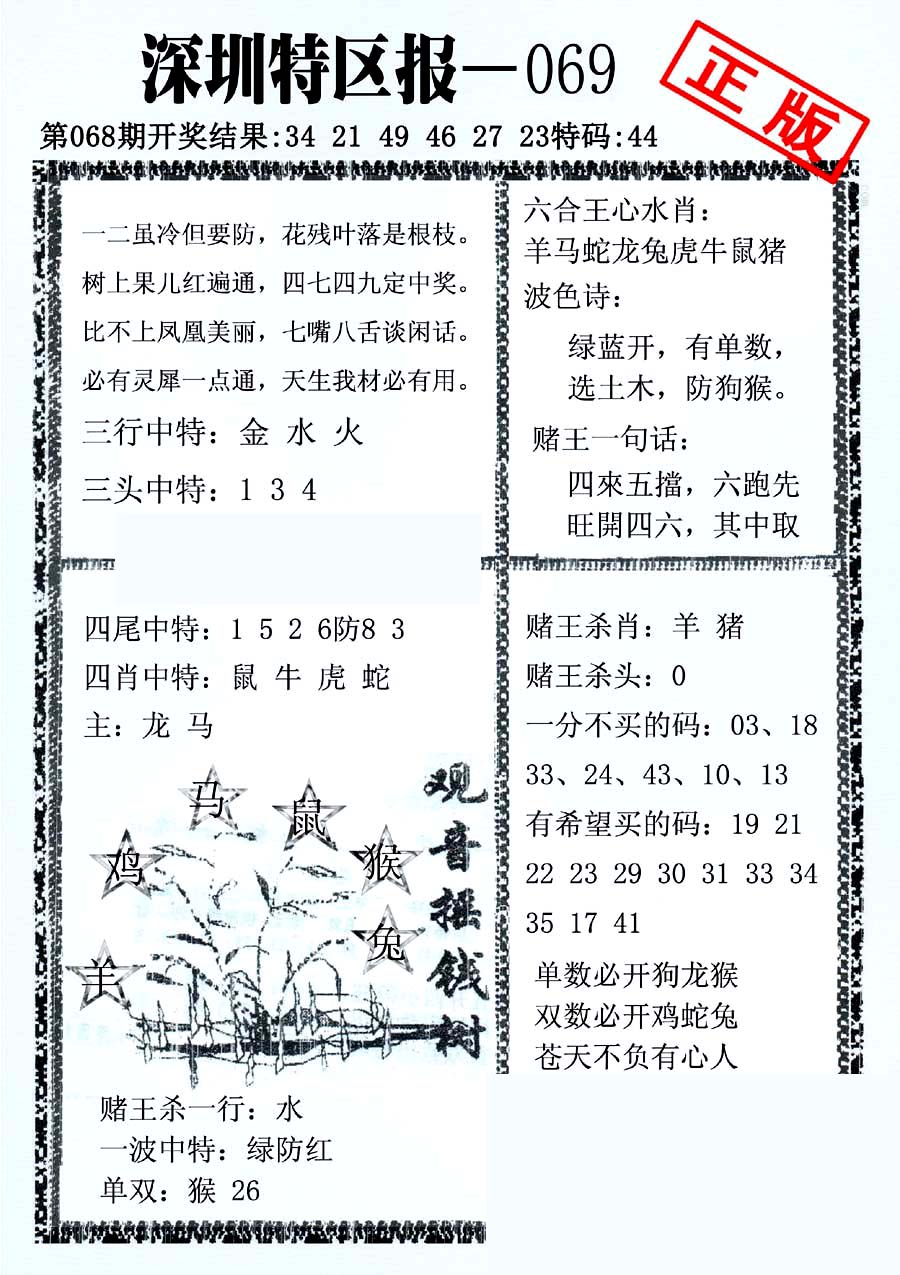 深圳特区报—069
正版
第068期开奖结果:34 21 49 46 27 23特码:44
一二虽冷但要防，花残叶落是根枝。
树上果儿红遍通，四七四九定中奖。
比不上凤凰美丽，七嘴八舌谈闲话。
必有灵犀一点通，天生我材必有用。
三行中特：金 水 火
三头中特：1 3 4
六合王心水肖：
羊马蛇龙兔虎牛鼠猪
波色诗：
绿蓝开，有单数，
选土木，防狗猴。
赌王一句话：
四來五擋，六跑先
旺開四六，其中取
四尾中特：1 5 2 6防8 3
四肖中特：鼠 牛 虎 蛇
主：龙 马
马
鼠
鸡
猴
兔
羊
观音摇钱树
赌王杀一行：水
一波中特：绿防红
单双：猴 26
赌王杀肖：羊 猪
赌王杀头：0
一分不买的码：03、18
33、24、43、10、13
有希望买的码：19 21
22 23 29 30 31 33 34
35 17 41
单数必开狗龙猴
双数必开鸡蛇兔
苍天不负有心人